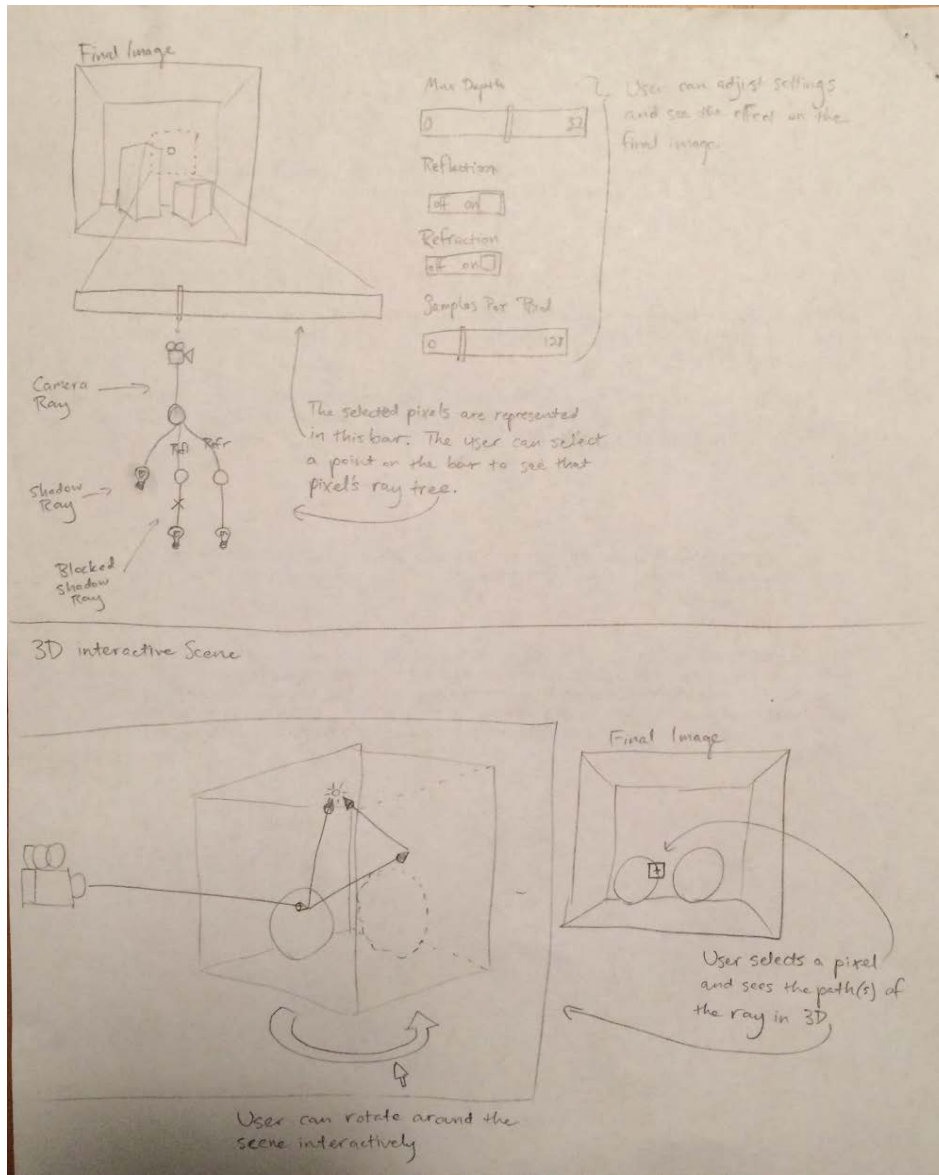 Final Image
Max Depth
0 32
Reflection
off on
Refraction
off on
Samples Per Pixel
0 128
User can adjust settings
and see the effect on the
final image.
Camera
Ray
Refl
Refr
Shadow
Ray
Blocked
Shadow
Ray
The selected pixels are represented
in this bar. The user can select
a point on the bar to see that
pixel's ray tree.
3D interactive Scene
Final Image
User selects a pixel
and sees the path(s) of
the ray in 3D
User can rotate around the
scene interactively